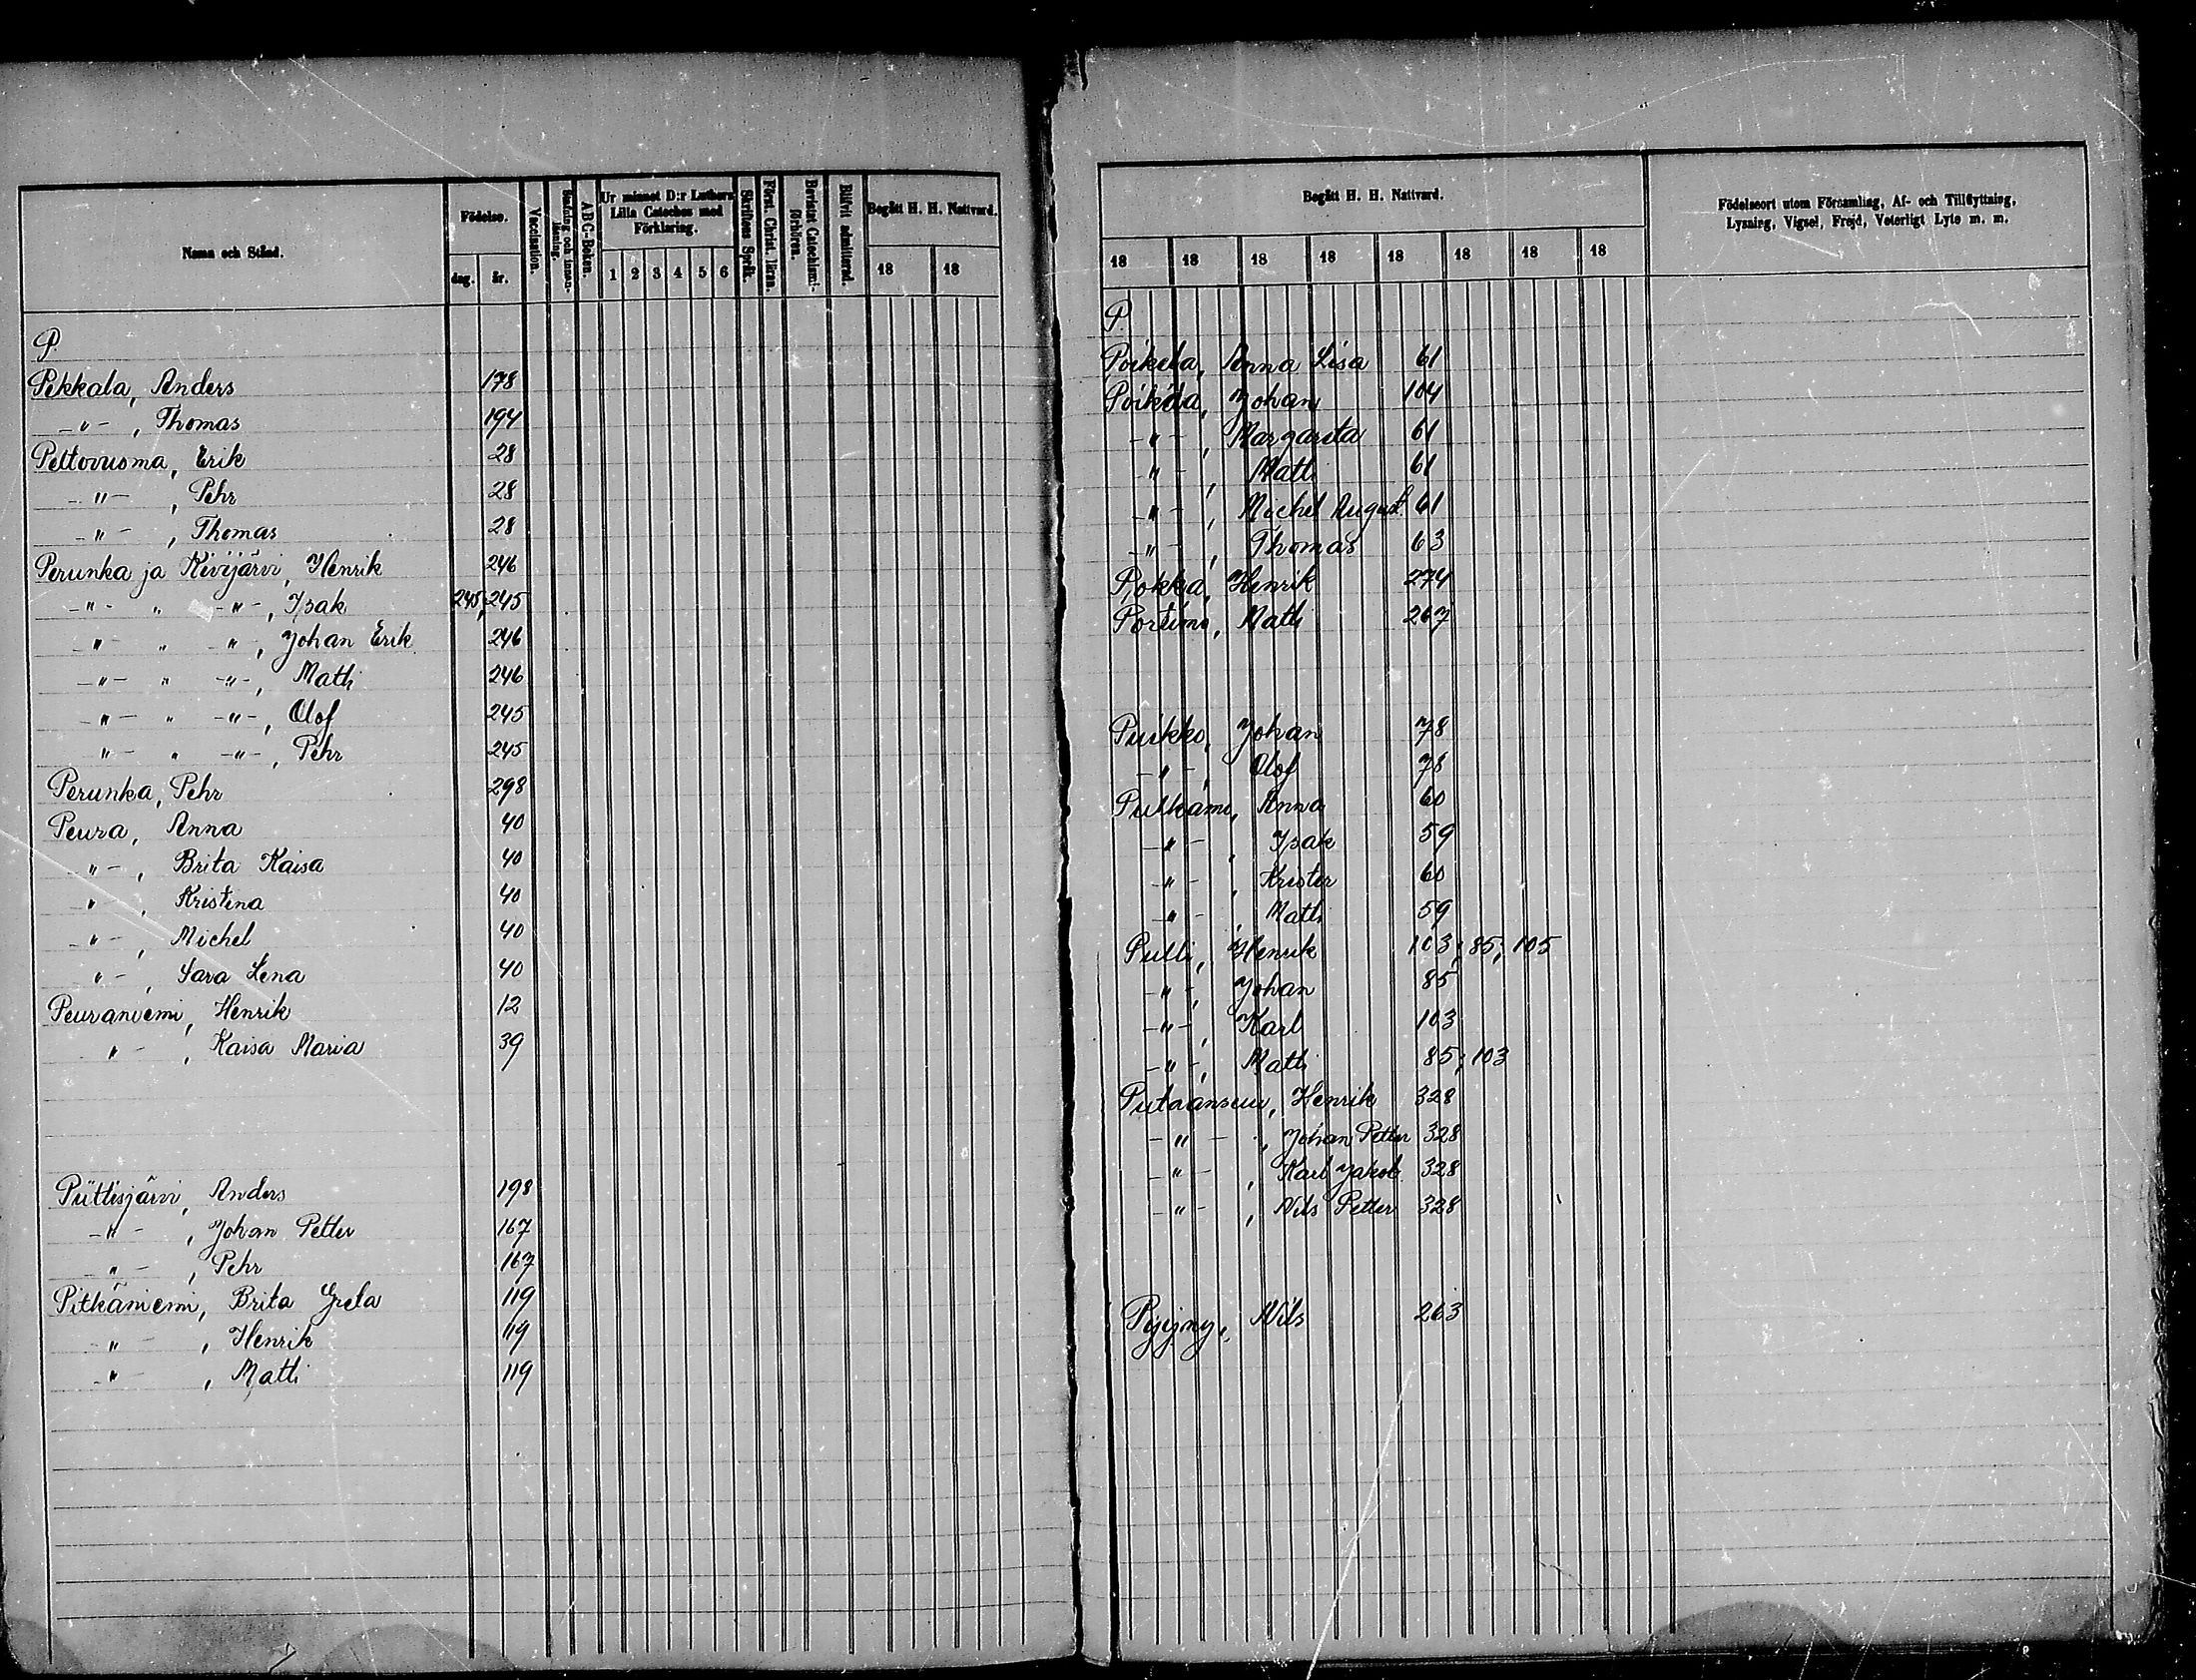 Namn och Stånd.
Födelse.
dag.
år.
Vaccination.
ABC-Boken.
Ur minnet D:r Luthers
Lilla Cateches med
Förklaring.
1 2 3 4 5 6
Skriftens Språk.
Först. Christ. läran.
Bevistat Catechismi-
förhören.
Blifvit admitterad.
Begått H. H. Nattvard.
18 18
P.
Pekkala, Anders 178
-"- , Thomas 194
Peltovuoma, Erik 28
-"- , Pehr 28
-"- , Thomas 28
Perunka ja Kivijärvi, Henrik 246
-"- " -"-, Isak 245, 245
-"- " -"-, Johan Erik 246
-"- " -"-, Matti 246
-"- " -"-, Olof 245
-"- " -"-, Pehr 245
Perunka, Pehr 298
Peura, Anna 40
-"- , Brita Kaisa 40
-"- , Kristina 40
-"- , Michel 40
-"- , Sara Lena 40
Peuraniemi, Henrik 12
-"- , Kaisa Maria 39
Piittisjärvi, Anders 198
-"- , Johan Petter 167
-"- , Pehr 167
Pitkäniemi, Brita Greta 119
-"- , Henrik 119
-"- , Matti 119
Begått H. H. Nattvard.
18 18 18 18 18 18 18 18
Födelseort utom Församling, Af- och Tillflyttning,
Lysning, Vigsel, Frejd, Veterligt Lyte m. m.
P.
Poikela, Anna Lisa 61
Poikela, Johan 104
-"- , Margareta 61
-"- , Matti 61
-"- , Michel August 61
-"- , Thomas 63
Pokka, Henrik 274
Portimo, Matti 267
Puikko, Johan 78
-"- , Olof 78
Pulkamo, Anna 60
-"- , Isak 59
-"- , Krister 60
-"- , Matti 59
Pulli, Henrik 103; 85; 105
-"-, Johan 85
-"-, Karl 103
-"-, Matti 85; 103
Putaansuu, Henrik 328
-"- , Johan Petter 328
-"- , Karl Jakob 328
-"- , Nils Petter 328
Pyyny, Nils 263